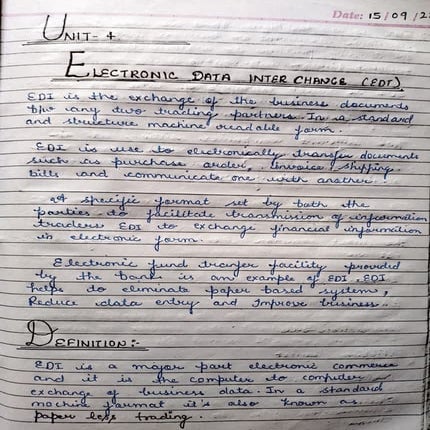 Date: 15/09/2
UNIT- 4
ELECTRONIC DATA INTER CHANGE (EDI)
EDI is the exchange of the business documents
b/w any two trading partners. In a standard
and structure machine readable form.
EDI is use to electronically transfer documents
such as purchase order, Invoice shipping
bills and communicate one with another.
A specific format set by both the
parties to facilitate transmission of information
traders EDI to exchange financial information
in electronic form.
Electronic fund tranfer facility provided
by the banks is any example of EDI. EDI
helps to eliminate paper based systems,
Reduce data entry and Improve business.
DEFINITION:-
EDI is a major part electronic commerce
and it is the computer to computer
exchange of business data. In a standard
machine format it's also known as
paper less trading.